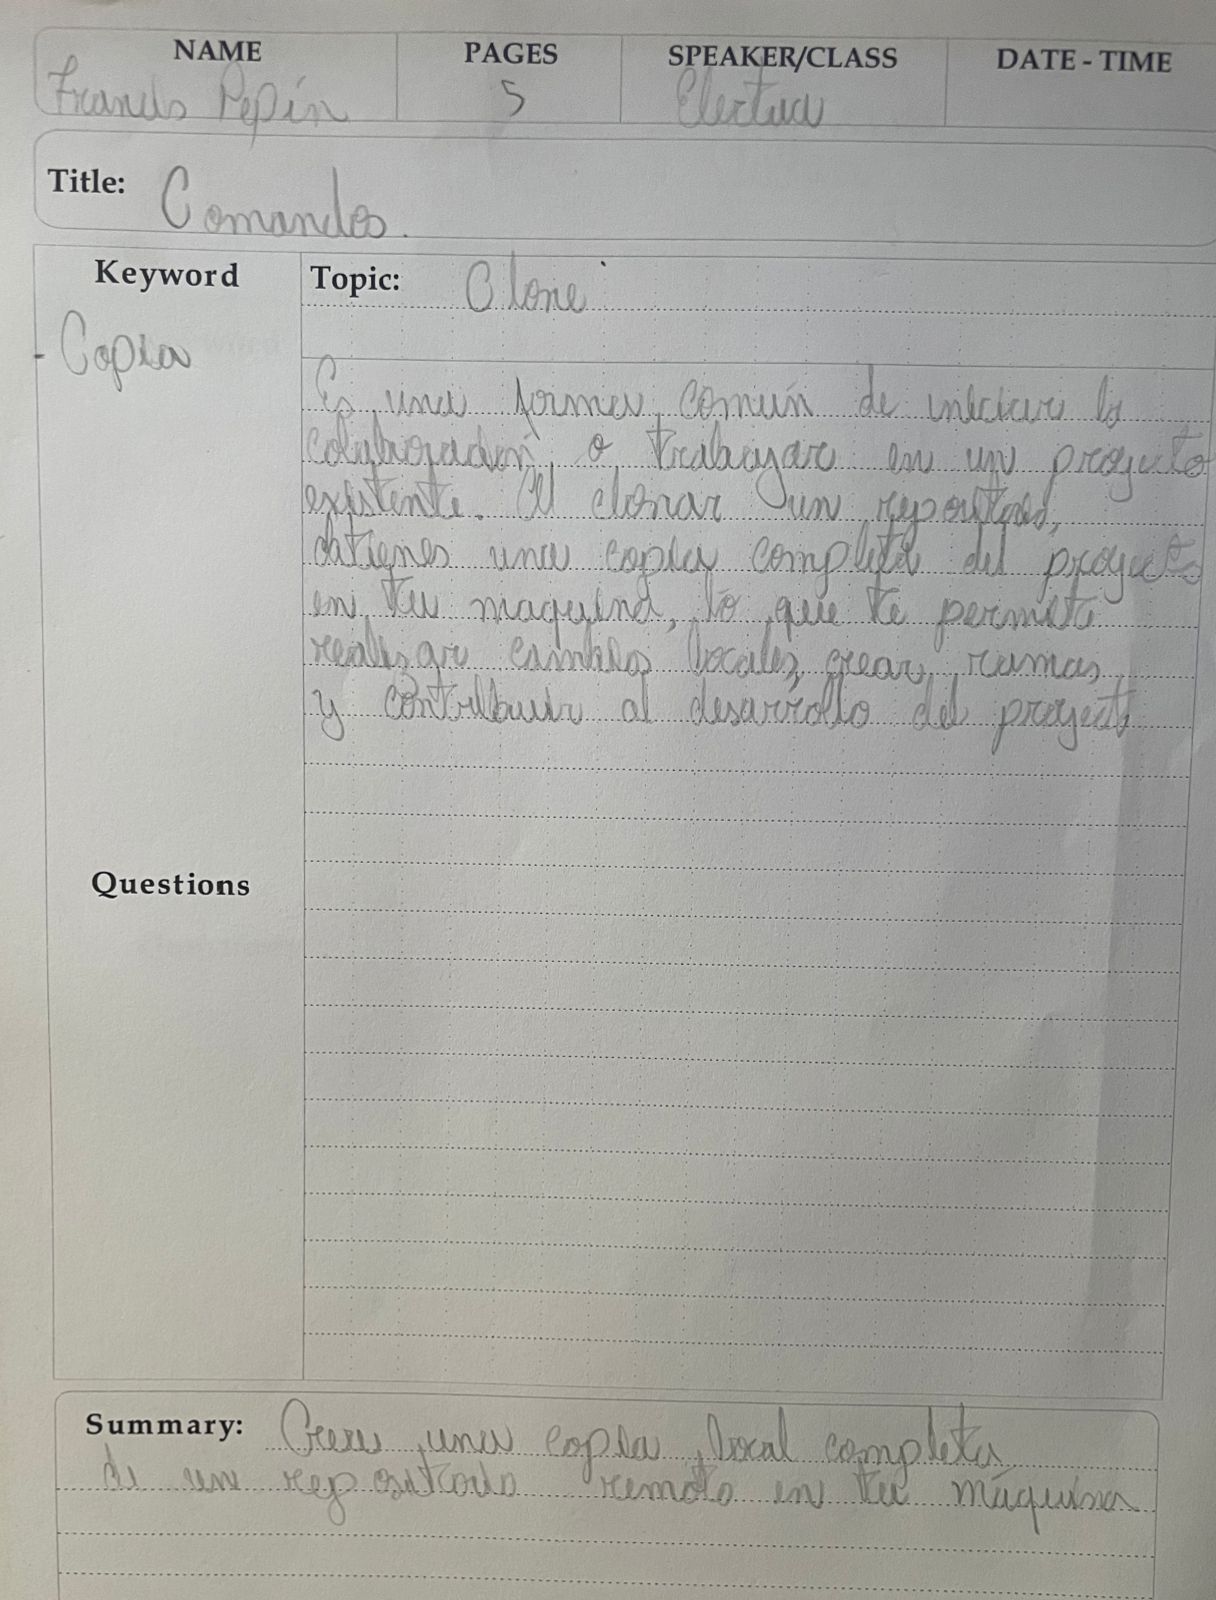 NAME PAGES SPEAKER/CLASS DATE - TIME
Francis Pepín 5 Electiva
Title: Comandos.
Keyword Topic: Clone
- Copia
Es una forma común de iniciar la
colaboración o trabajar en un proyecto
existente. Al clonar un repositorio,
obtienes una copia completa del proyecto
en tu maquina, lo que te permite
realizar cambios locales, crear ramas,
y contribuir al desarrollo del proyecto
Questions
Summary: Crea una copia local completa
de un repositorio remoto en tu máquina